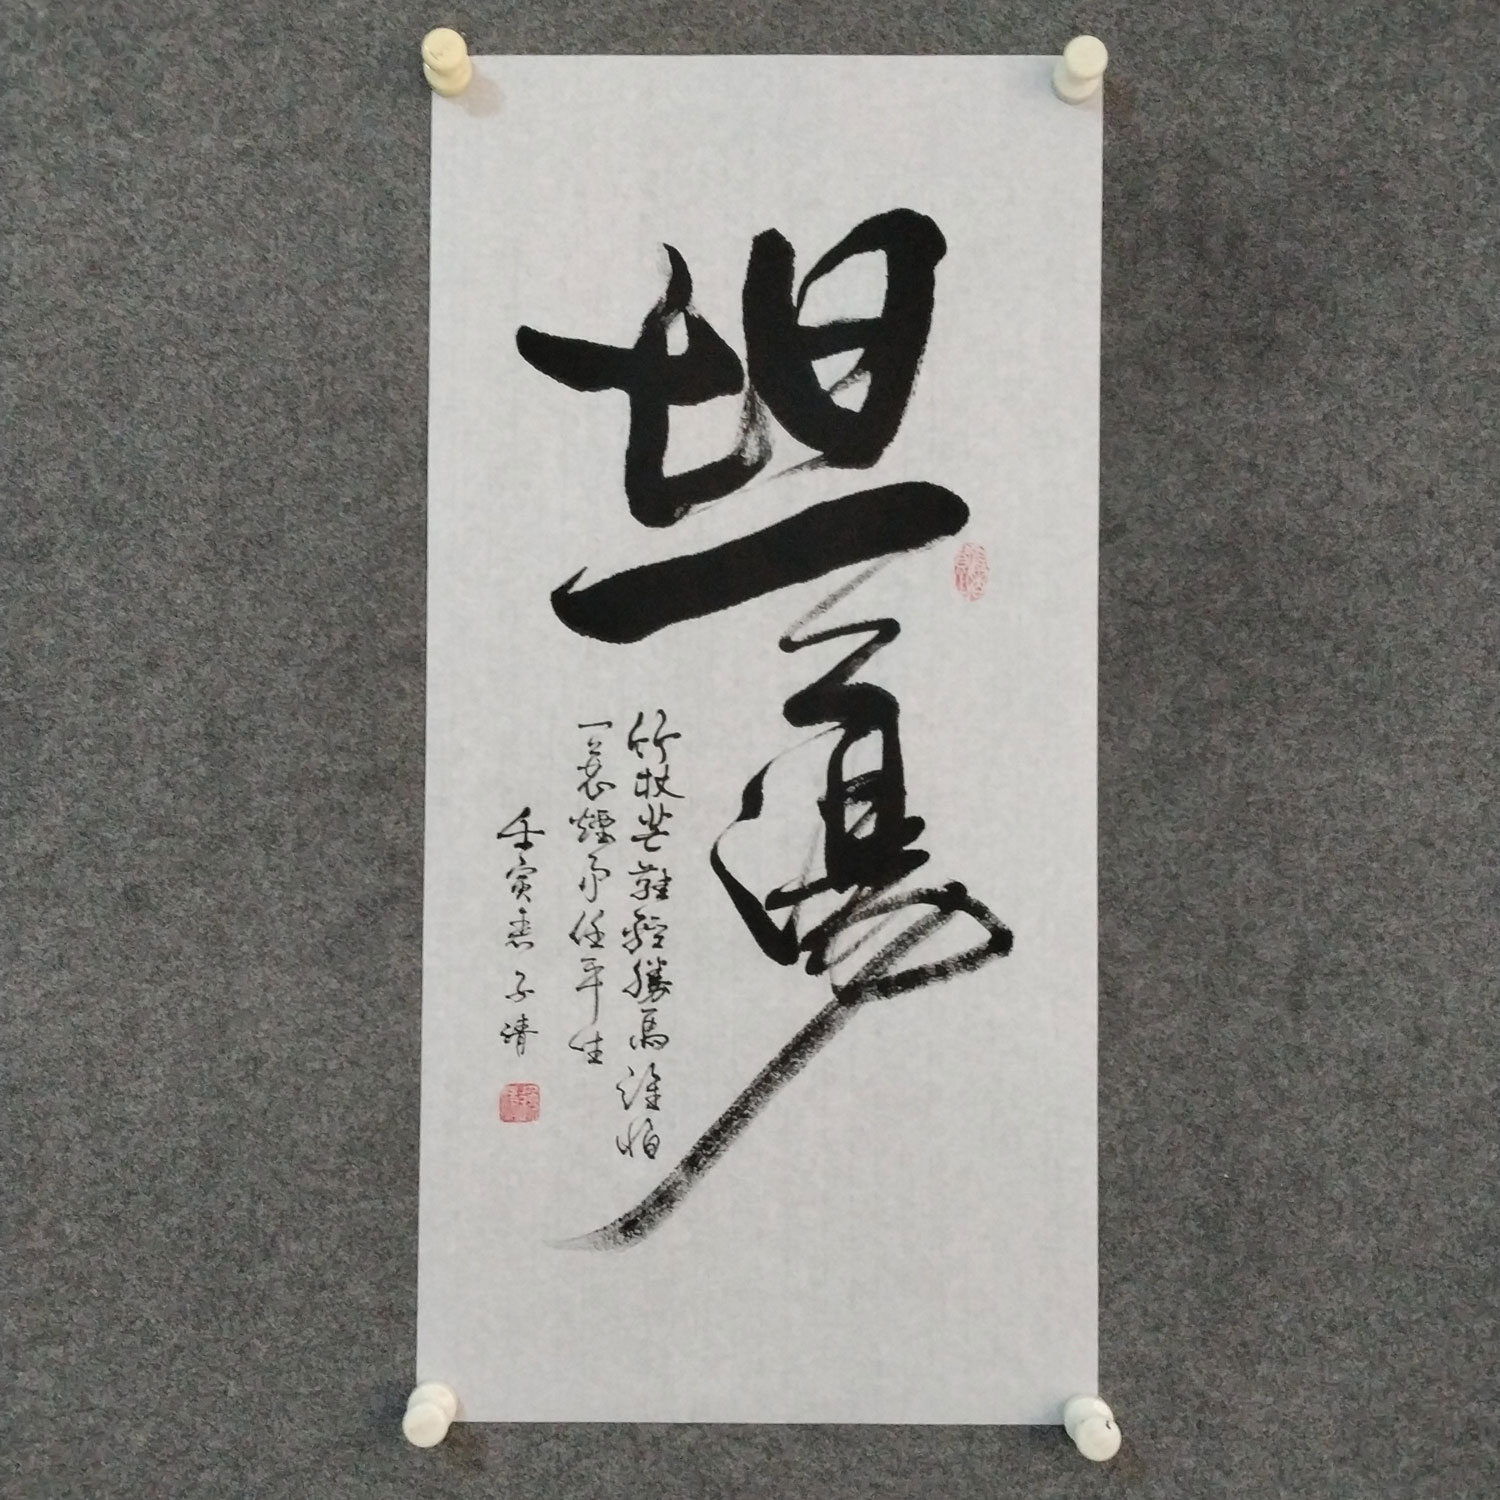 坦蕩
竹杖芒鞋輕勝馬誰怕
一蓑煙雨任平生
壬寅春 子清